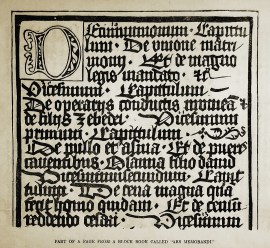 Decimumnonum. Capitu
lum. De unione matri
monij. Et de magno
legis mandato. &c
Vicesimum. Capitulum.
De operarijs conductis
de filijs zebedei. Vicesimum
primum. Capitulum.
De pullo et asina. Et de pueris
Osanna filio david
Capi
tulum. De cena magna qua
fecit homo quidam. Et de censu
reddendo cesari. Vicesimum
PART OF A PAGE FROM A BLOCK BOOK CALLED "ARS MEMORANDI"